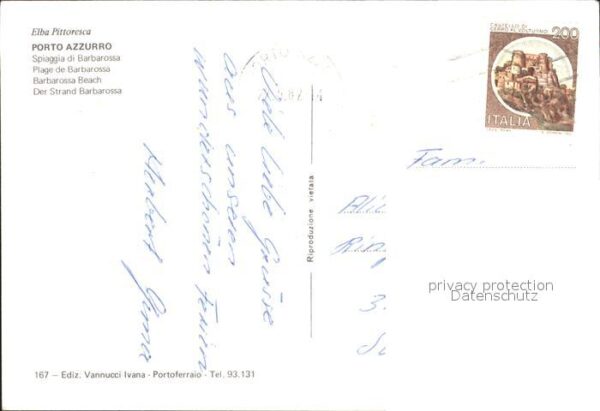 Elba Pittoresca
PORTO AZZURRO
Spiaggia di Barbarossa
Plage de Barbarossa
Barbarossa Beach
Der Strand Barbarossa
Viele liebe Grüsse
aus unseren
wunderschönen Ferien
Hubert
Riproduzione vietata
200
CASTELLO DI
CERRO AL VOLTURNO
ITALIA
Fam.
3
privacy protection
Datenschutz
167 – Ediz. Vannucci Ivana - Portoferraio - Tel. 93.131